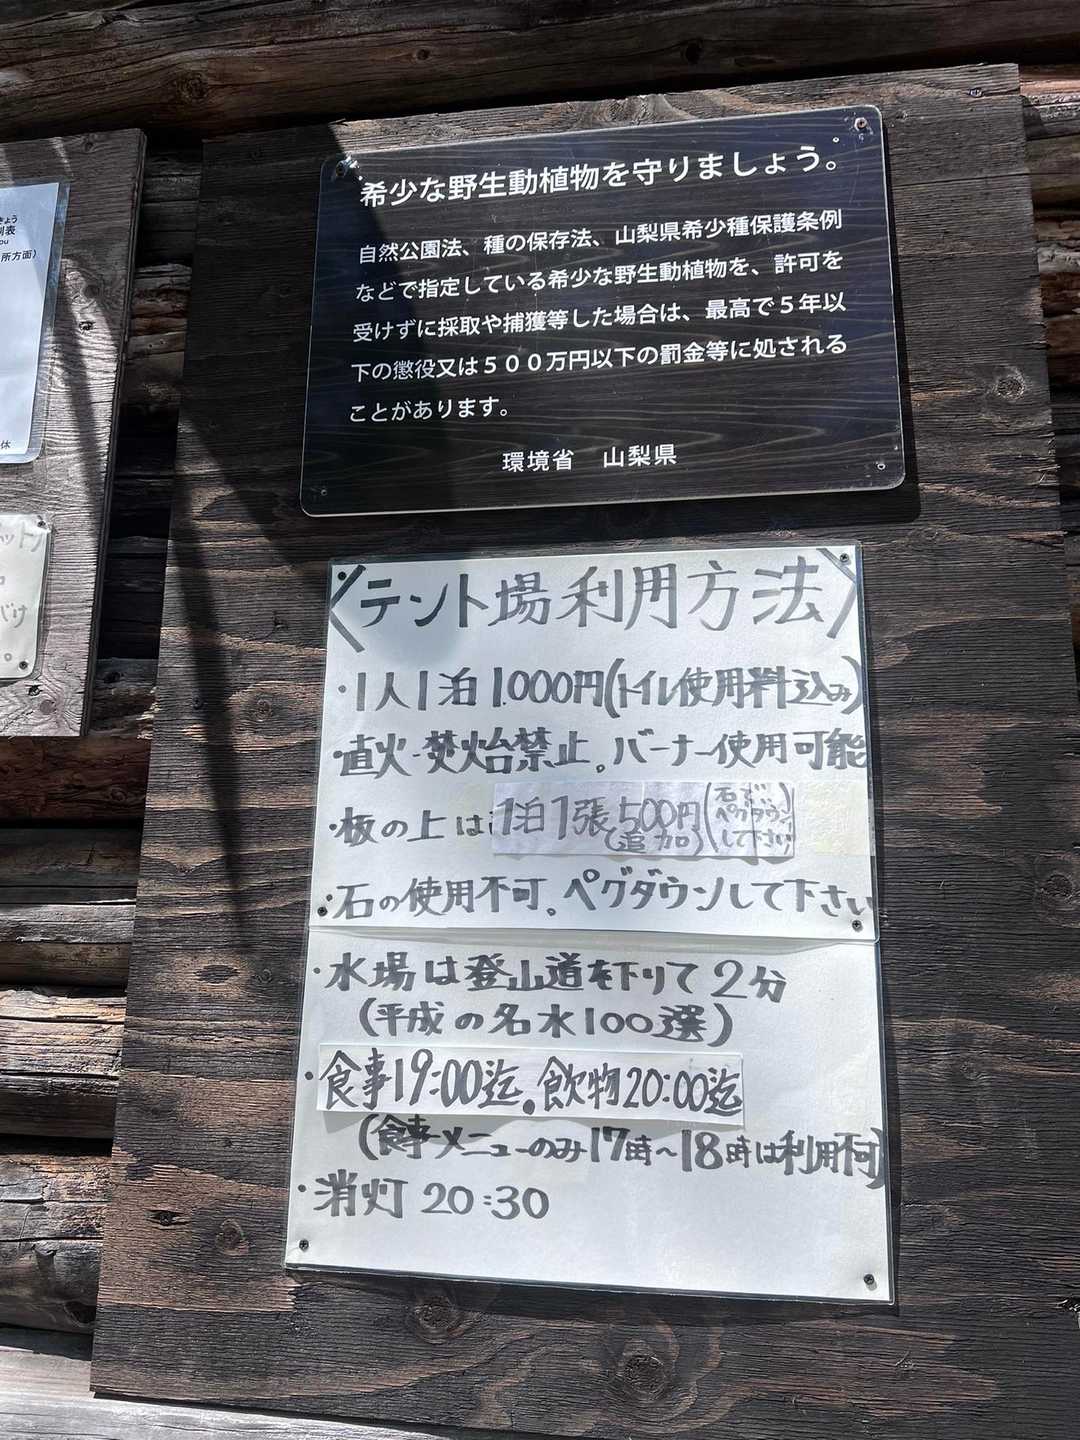 きょう
刂表
ou
所方面)
休
ット
バけ
。
希少な野生動植物を守りましょう。
自然公園法、種の保存法、山梨県希少種保護条例
などで指定している希少な野生動植物を、許可を
受けずに採取や捕獲等した場合は、最高で5年以
下の懲役又は500万円以下の罰金等に処される
ことがあります。
環境省 山梨県
〈テント場利用方法〉
・1人1泊1.000円(トイレ使用料込み)
・直火・焚火台禁止。バーナー使用可能
・板の上は 1泊1張500円(追加) (石ず ペグダウン して下さい)
・石の使用不可。ペグダウンして下さい
・水場は登山道を下りて2分
(平成の名水100選)
・食事19:00迄。飲物20:00迄
(食事メニューのみ17時~18時は利用不可)
・消灯 20:30